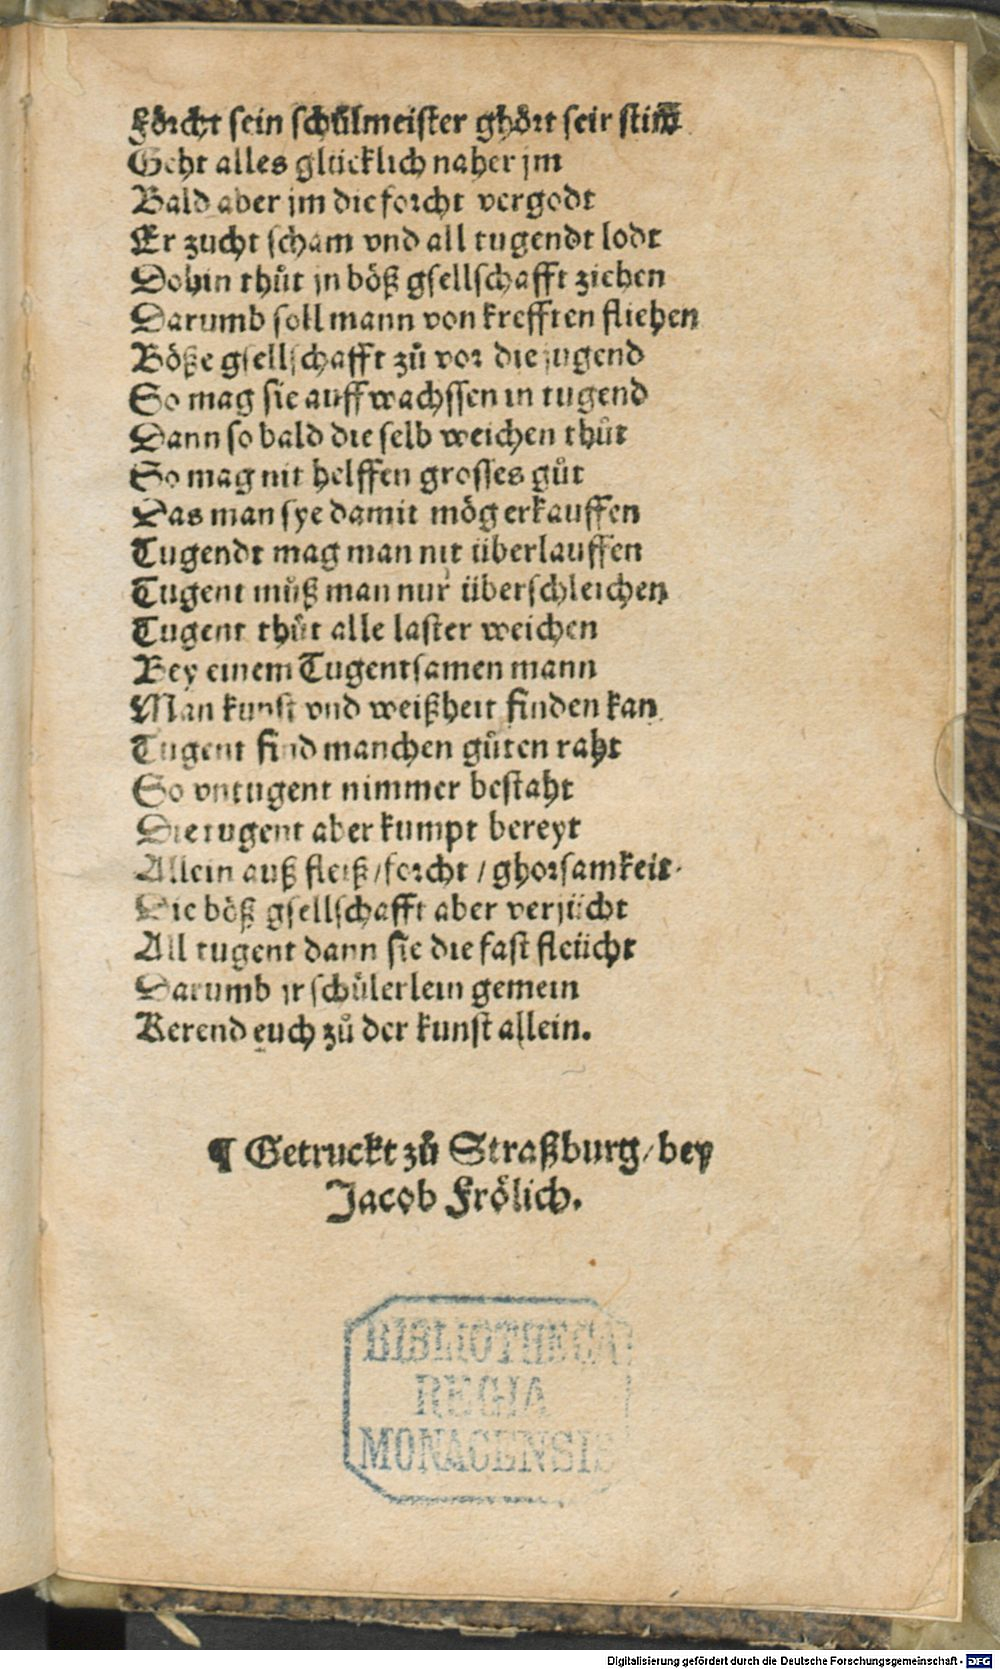 Förcht sein schůlmeister ghört seir stim̃
Geht alles glücklich naher jm
Bald aber jm die forcht vergodt
Er zucht scham vnd all tugendt lodt
Dohin thůt jn böß gsellschafft ziehen
Darumb soll mann von krefften fliehen
Böße gsellschafft zů vor die jugend
So mag sie auffwachssen in tugend
Dann so bald die selb weichen thůt
So mag nit helffen grosses gůt
Das man sye damit mög erkauffen
Tugendt mag man nit überlauffen
Tugent můß man nur überschleichen
Tugent thůt alle laster weichen
Bey einem Tugentsamen mann
Man kunst vnd weißheit finden kan
Tugent find manchen gůten raht
So vntugent nimmer bestaht
Die tugent aber kumpt bereyt
Allein auß fleiß / forcht / ghorsamkeit.
Die böß gsellschafft aber verjücht
All tugent dann sie die fast fleücht
Darumb jr schůlerlein gemein
Kerend euch zů der kunst allein.
¶ Getruckt zů Straßburg / bey
Jacob Frölich.
BIBLIOTHECA
REGIA
MONACENSIS
Digitalisierung gefördert durch die Deutsche Forschungsgemeinschaft - DFG